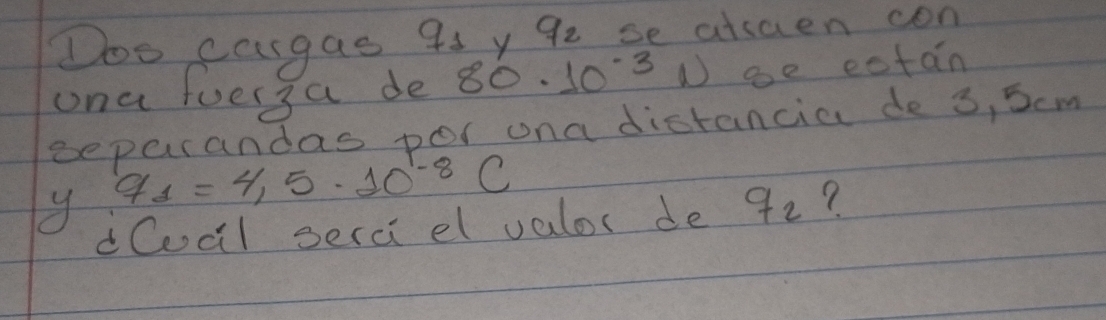 Dos cargas q₁ y q₂ se atraen con
una fuerza de 80 · 10⁻³ N se están
separandas por una distancia de 3,5cm
y q₁ = 4,5 · 10⁻⁸ C
¿Cuál será el valor de q₂?